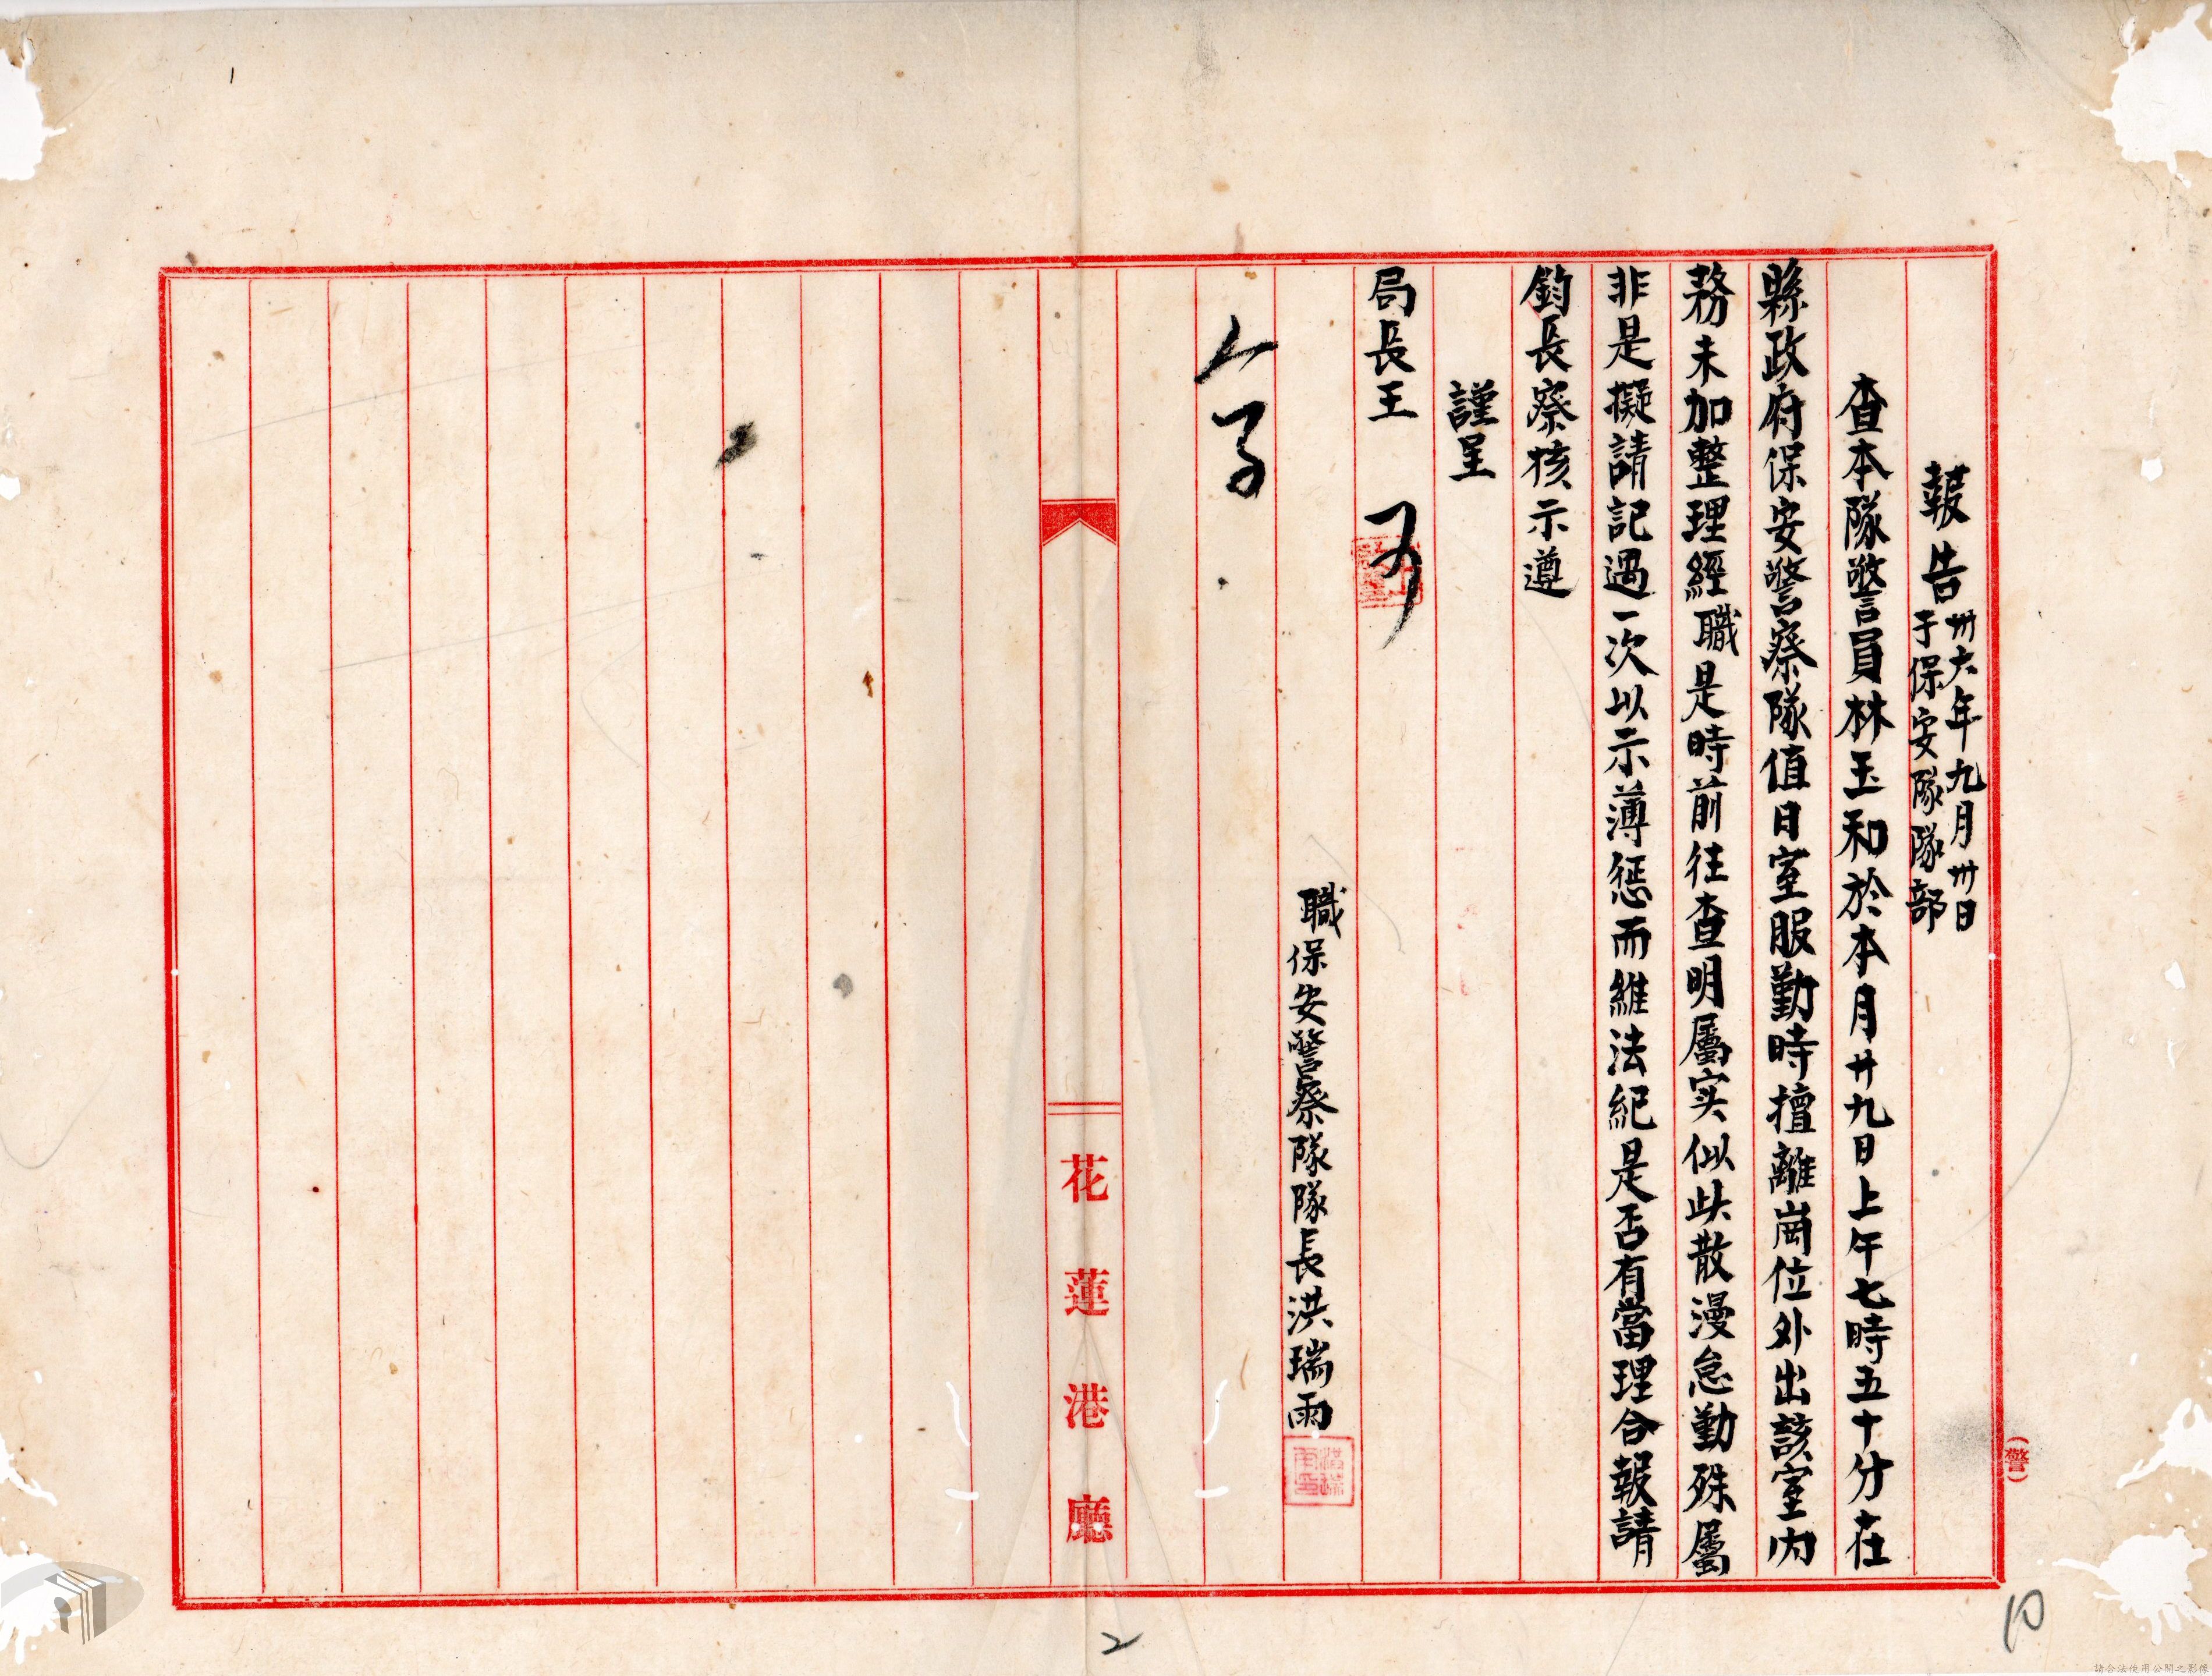 報告 卅六年九月卅日
于保安隊隊部
查本隊警員林玉和於本月廿九日上午七時五十分在
縣政府保安警察隊值日室服勤時擅離崗位外出該室內
務未加整理經職是時前往查明屬实似此散漫怠勤殊屬
非是擬請記過一次以示薄懲而維法紀是否有當理合報請
鈞長察核示遵
謹呈
局長王
可
職保安警察隊隊長洪瑞雨
花蓮港廳
(警)
10
2
請合法使用公開之影像